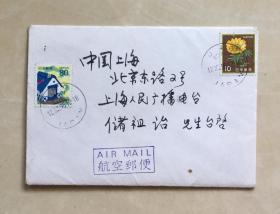 中国上海
北京东路2号
上海人民广播电台
储祖诒 先生台启
AIR MAIL
航空郵便
80
10